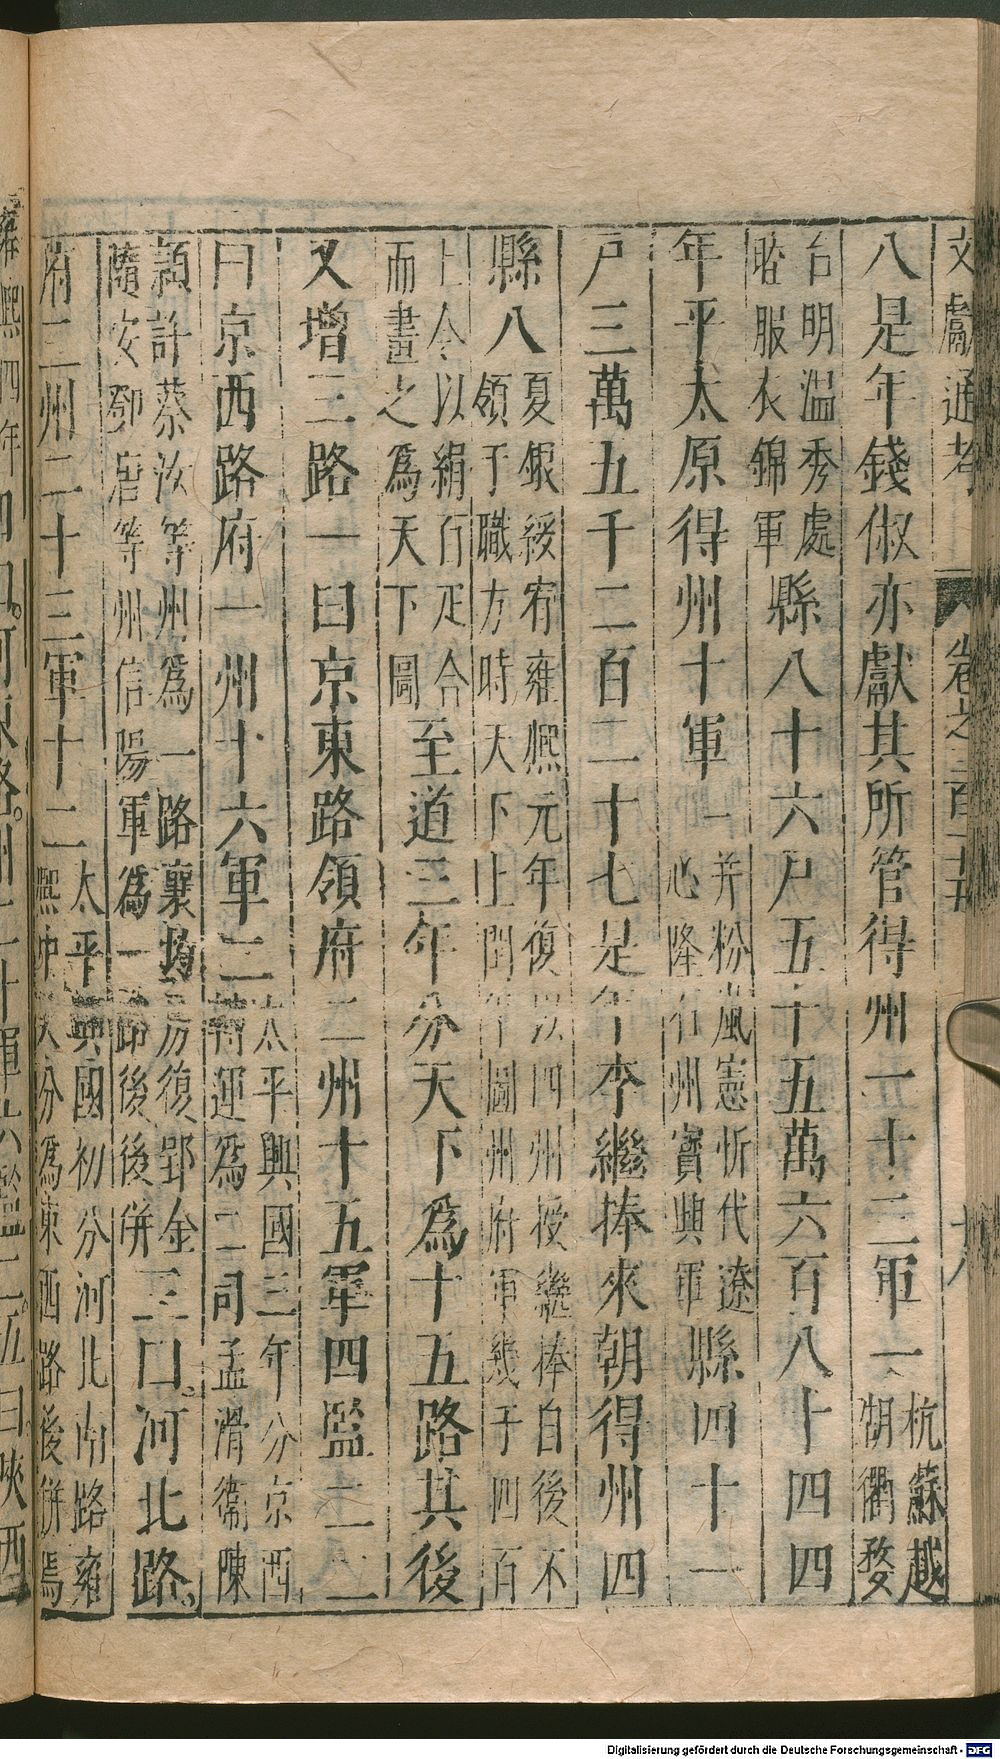 文獻通考 卷之三百十五 十八
八是年錢俶亦獻其所管得州一十三軍一杭蘇越湖衢婺
台明溫秀處睦服衣錦軍縣八十六戶五十五萬六百八十四四
年平太原得州十軍一并汾嵐憲忻代遼沁隆石州寶興軍縣四十一
戶三萬五千二百二十七是年李繼捧來朝得州四
縣八夏銀綏宥雍熙元年復以四州授繼捧自後不領于職方時天下上閏年圖州府軍幾于四百
上令以絹百疋合而畫之爲天下圖至道三年分天下爲十五路其後
又增三路一曰京東路領府二州十五軍四監二二
曰京西路府一州十六軍二太平興國三年分京西轉運爲二司孟滑衞陳
潁許蔡汝等州爲一路襄均房復郢金隨安鄧唐等州信陽軍爲一路後後併三曰河北路
府三州二十三軍十二太平興國初分河北南路雍熙中又分爲東西路後併焉
雍熙四年 四曰河東路州二十軍六監二五曰陝西
Digitalisierung gefördert durch die Deutsche Forschungsgemeinschaft - DFG